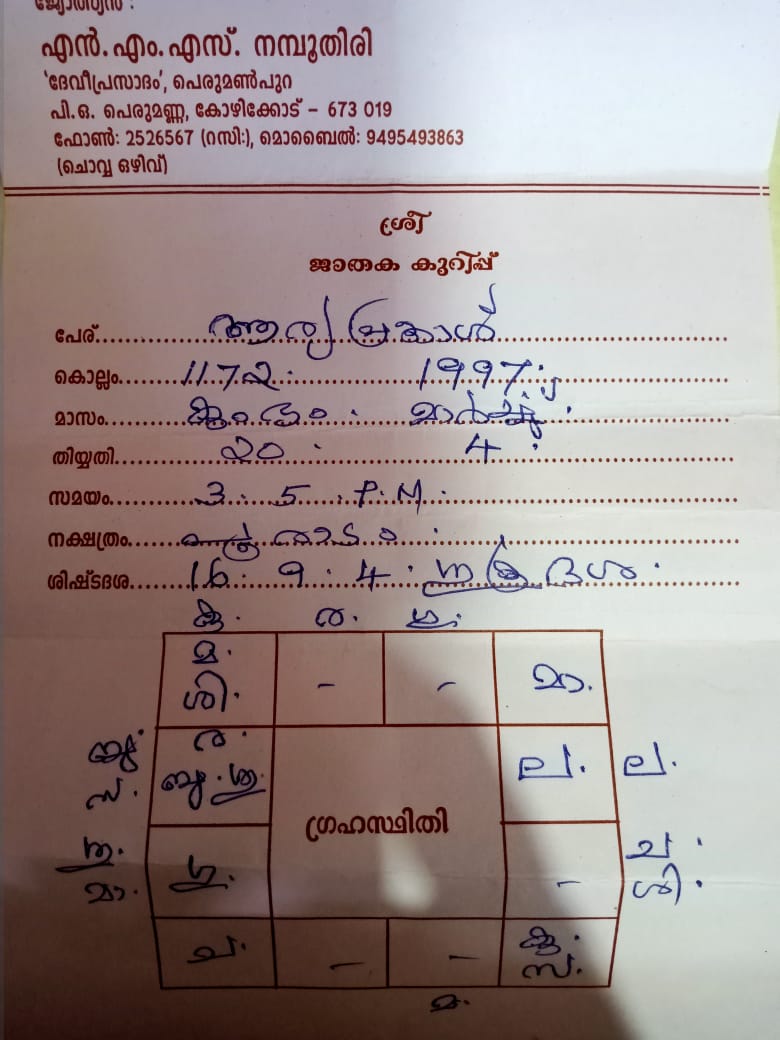 ജ്യോത്സ്യൻ :
എൻ.എം.എസ്. നമ്പൂതിരി
'ദേവീപ്രസാദം', പെരുമൺപുറ
പി.ഒ. പെരുമണ്ണ, കോഴിക്കോട് – 673 019
ഫോൺ: 2526567 (റസി:), മൊബൈൽ: 9495493863
(ചൊവ്വ ഒഴിവ്)
ശ്രീ
ജാതക കുറിപ്പ്
പേര്..... ആര്യ പ്രകാശ്
കൊല്ലം..... 1172. 1997
മാസം..... കുംഭം . മാർച്ച് .
തിയ്യതി..... 20 . 4 .
സമയം..... 3 . 5 . P.M.
നക്ഷത്രം..... പൂരാടം .
ശിഷ്ടദശ..... 16 . 9 . 4 . ശുക്ര ദശ .
കു. ര.
മ. – – മാ.
ശി.
ര. ല. ല.
ബു. ശു.
സ.
ഗ്രഹസ്ഥിതി
മാ. ഗു. – ച .
ശി .
ച. – – കു.
സ.
മ.